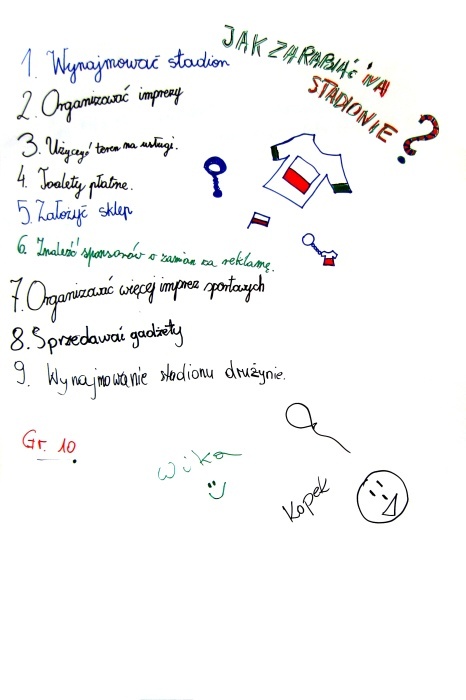 JAK ZARABIAĆ NA
STADIONIE?
1. Wynajmować stadion
2. Organizować imprezy
3. Użyczyć teren na usługi.
4. Toalety płatne.
5. Założyć sklep
6. Znaleźć sponsorów w zamian za reklamę.
7. Organizować więcej imprez sportowych
8. Sprzedawać gadżety
9. Wynajmowanie stadionu drużynie.
Gr. 10
Wika
Kopek